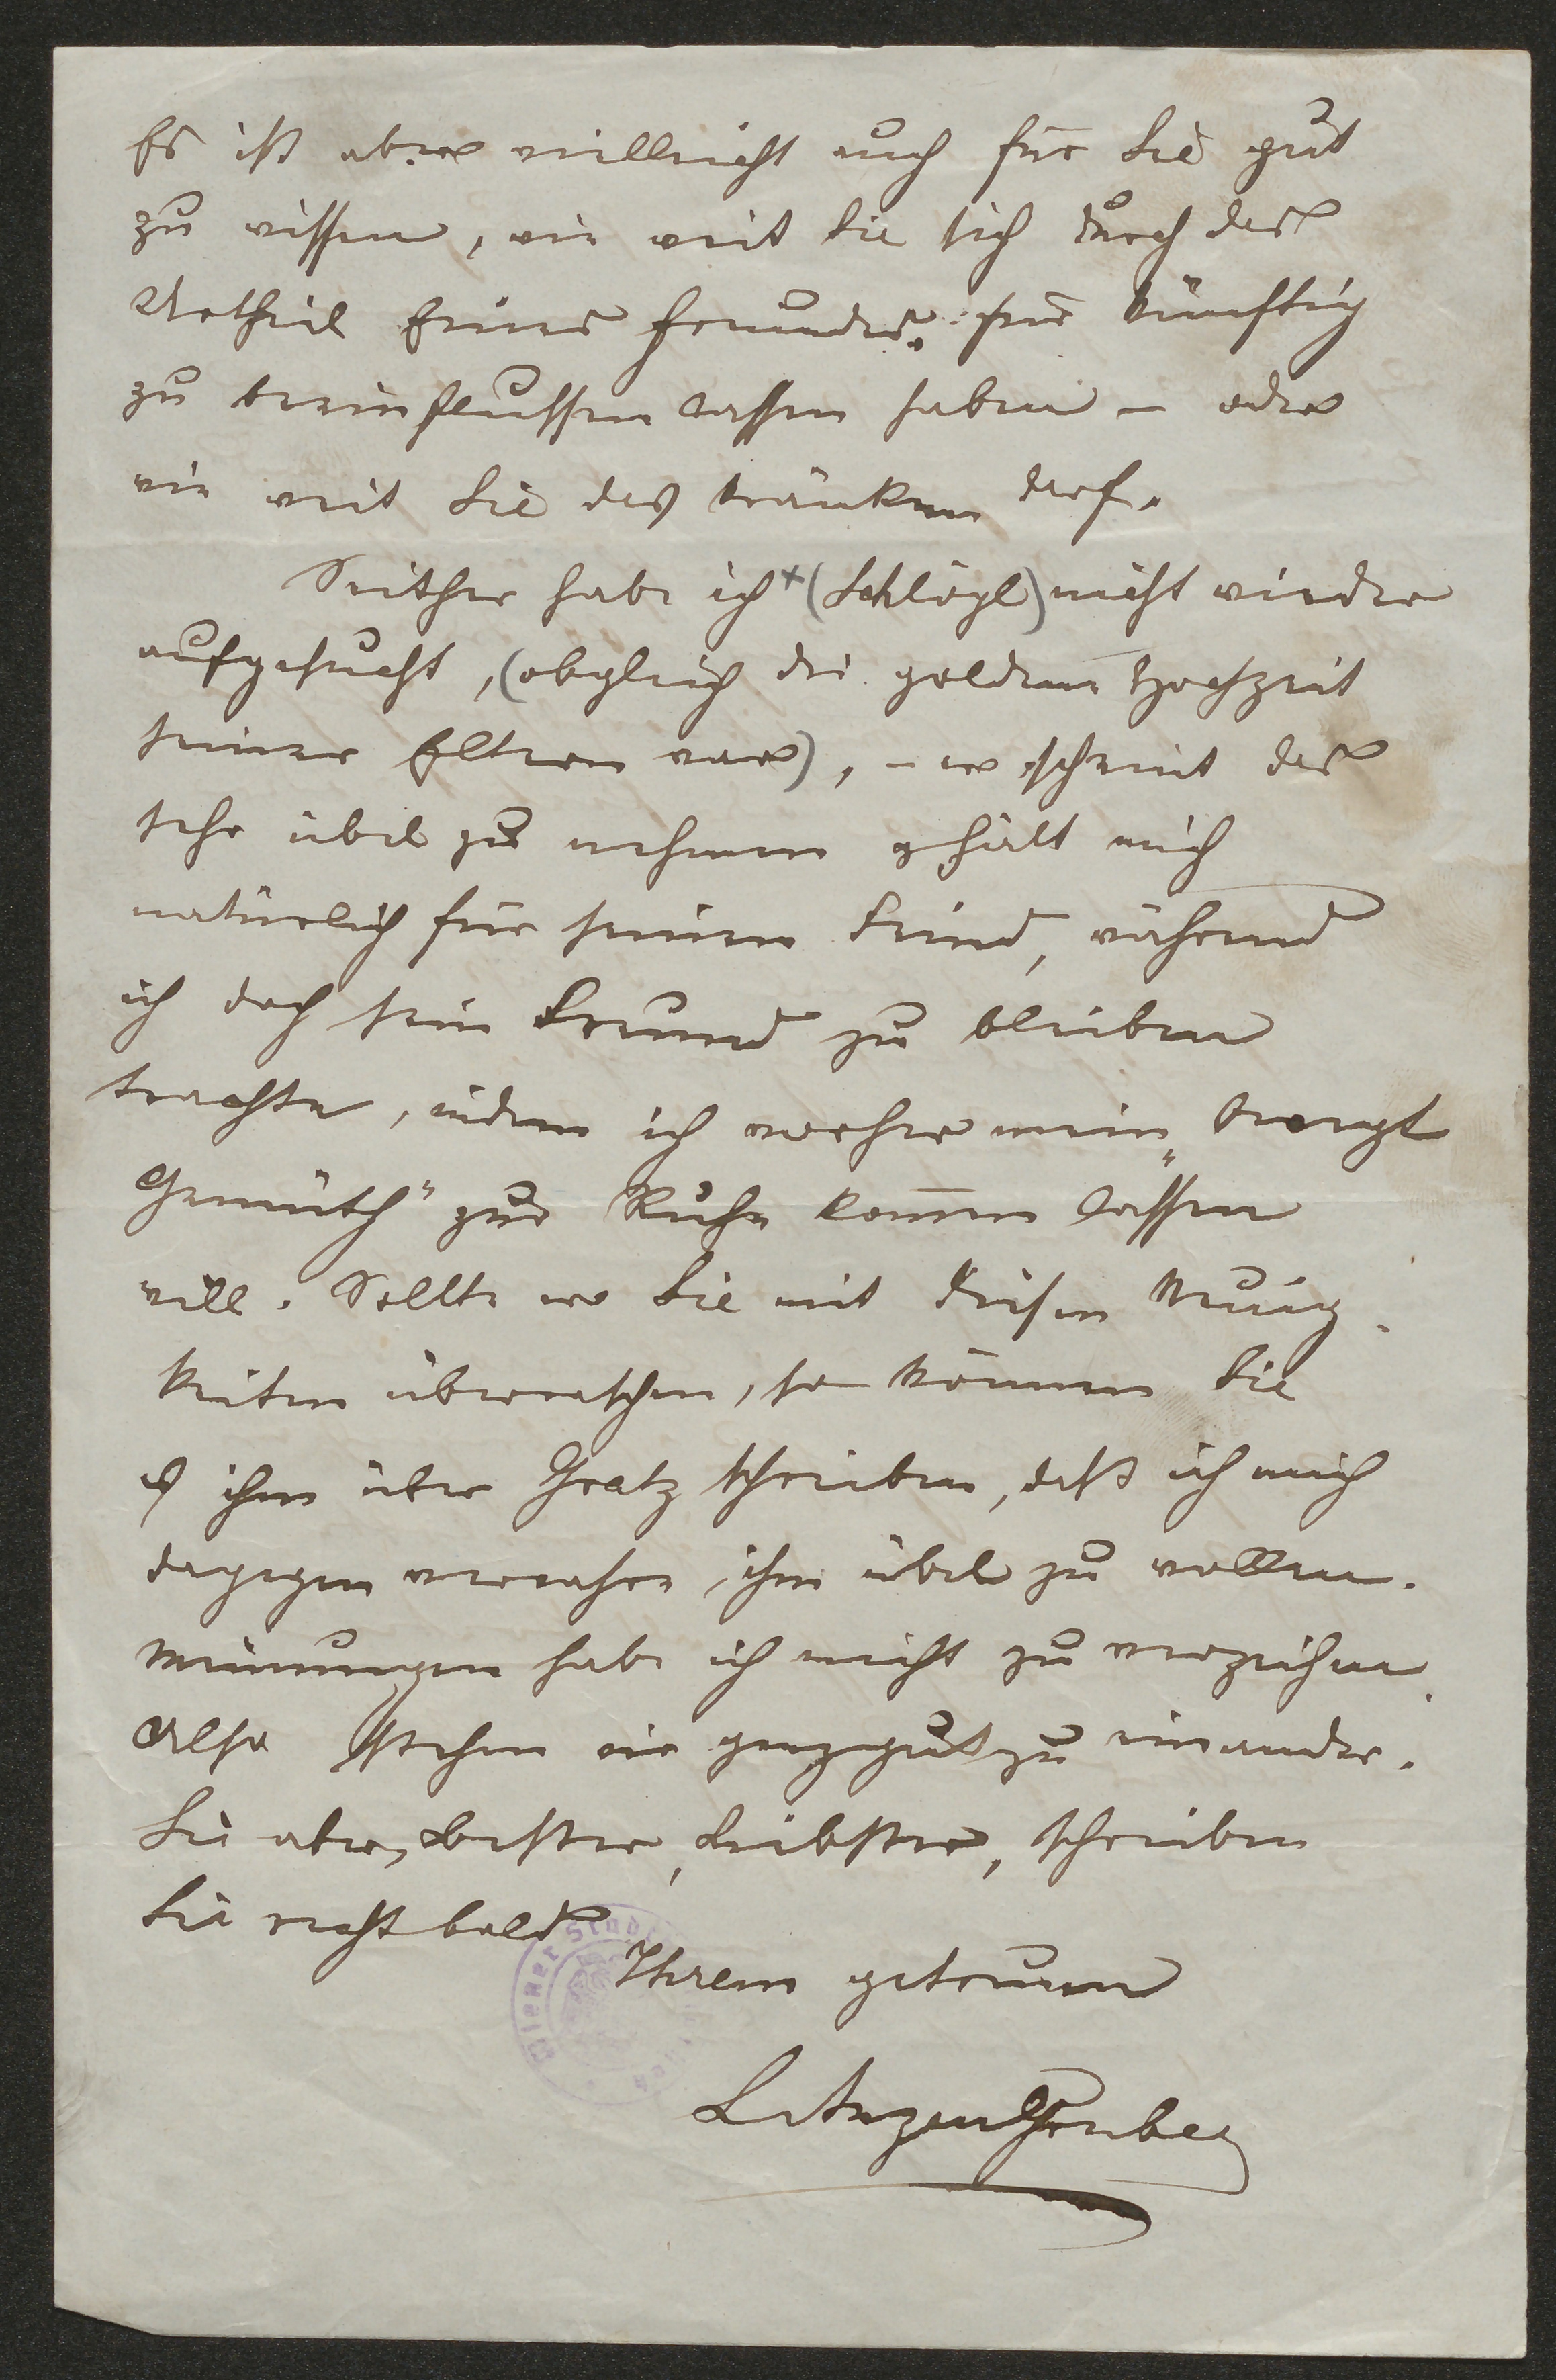 Es ist aber vielleicht auch für Sie gut
zu wissen, wie weit Sie sich durch das
Urtheil Eines Freundes für künftig
zu beeinflussen lassen haben – oder
wie weit Sie das kränken darf.
Seither habe ich + (Schlögl) nicht wieder
aufgesucht, (obgleich die goldene Hochzeit
seiner Eltern war), – er scheint das
sehr übel zu nehmen & hält mich
natürlich für seinen Feind, während
ich doch sein Freund zu bleiben
trachte, indem ich vorher mein „bewegt
Gemüth“ zur Ruhe kom̅en lassen
will. Sollte er Sie mit diesen Neuig-
keiten überraschen, so können Sie
es ihm über Gratz schreiben, daß ich mich
dagegen verwahre, ihm übel zu wollen.
Meinungen habe ich nicht zu verzeihen.
Also stehen wir ganz gut zu einander.
Sie aber, Bester, Liebster, schreiben
Sie recht bald
Ihrem getreuen
Wiener Stadt